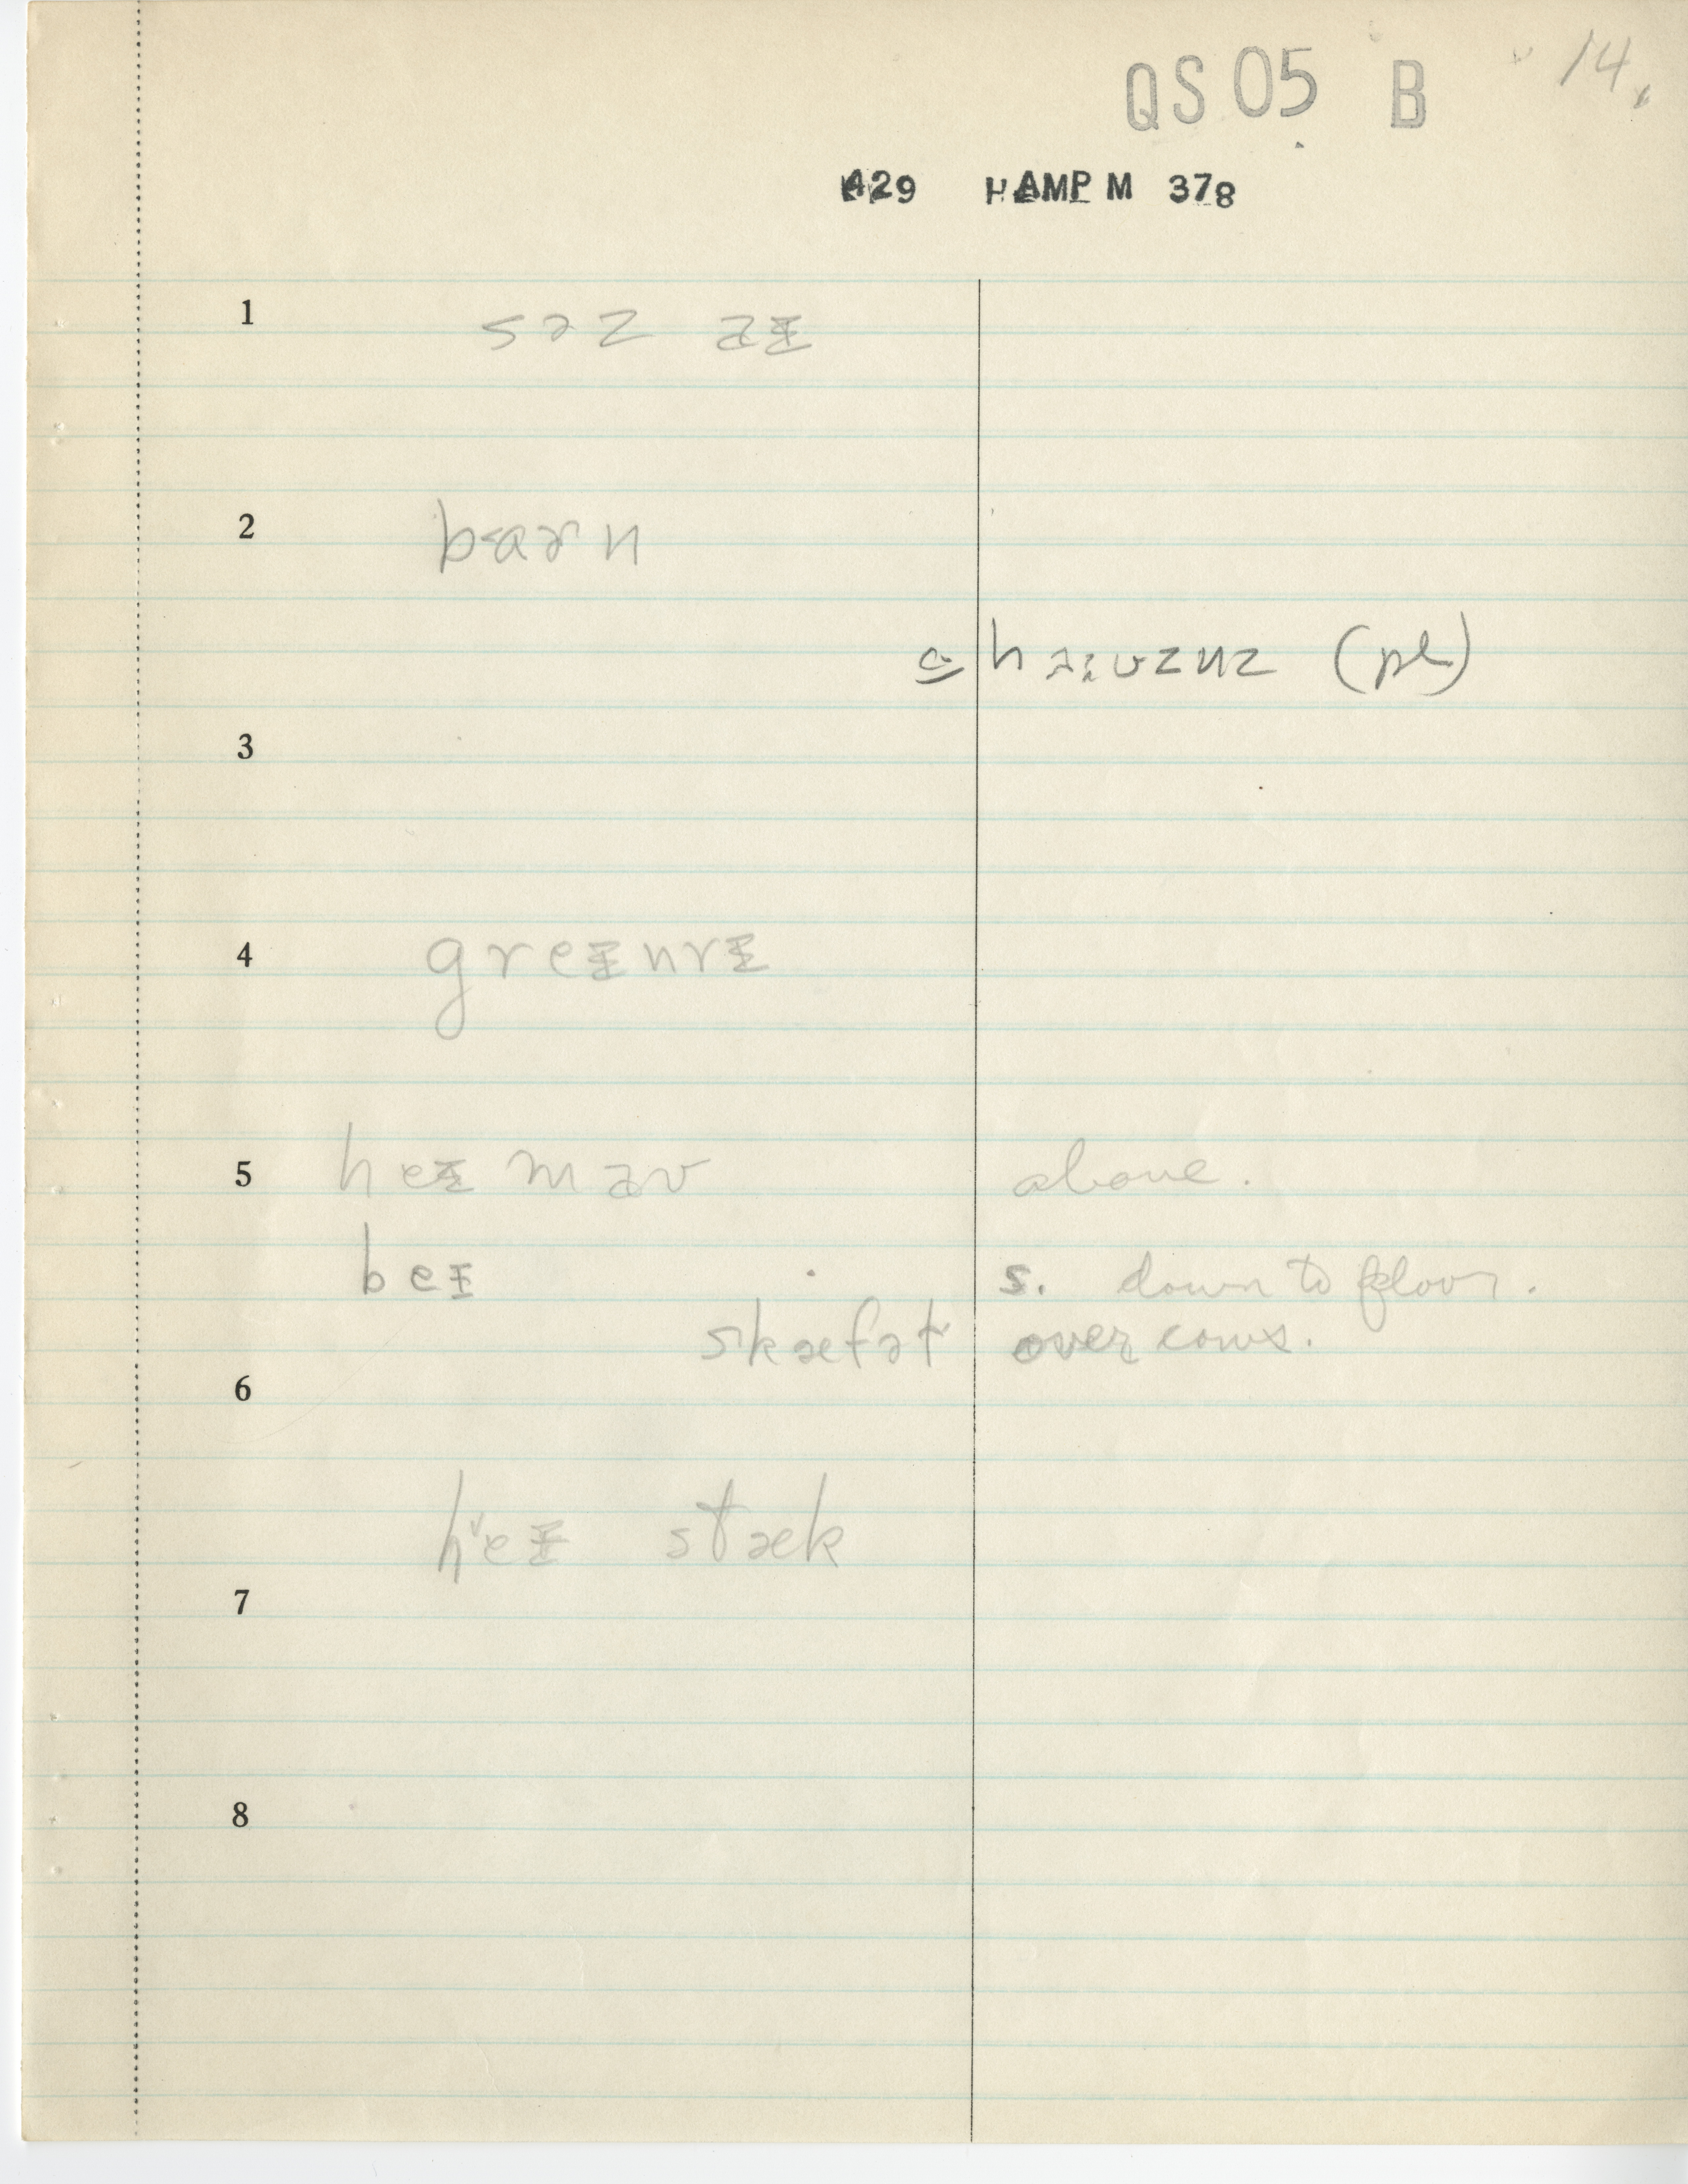 QS05 B 14.
429 HAMP M 378
1 səz
2 b<arn
haʊznz (pl)
3
4 greɪnrɪ
5 heɪ maʊ above.
beɪ s. down to floor.
skæfət over cows.
6
h˅eɪ stæk
7
8